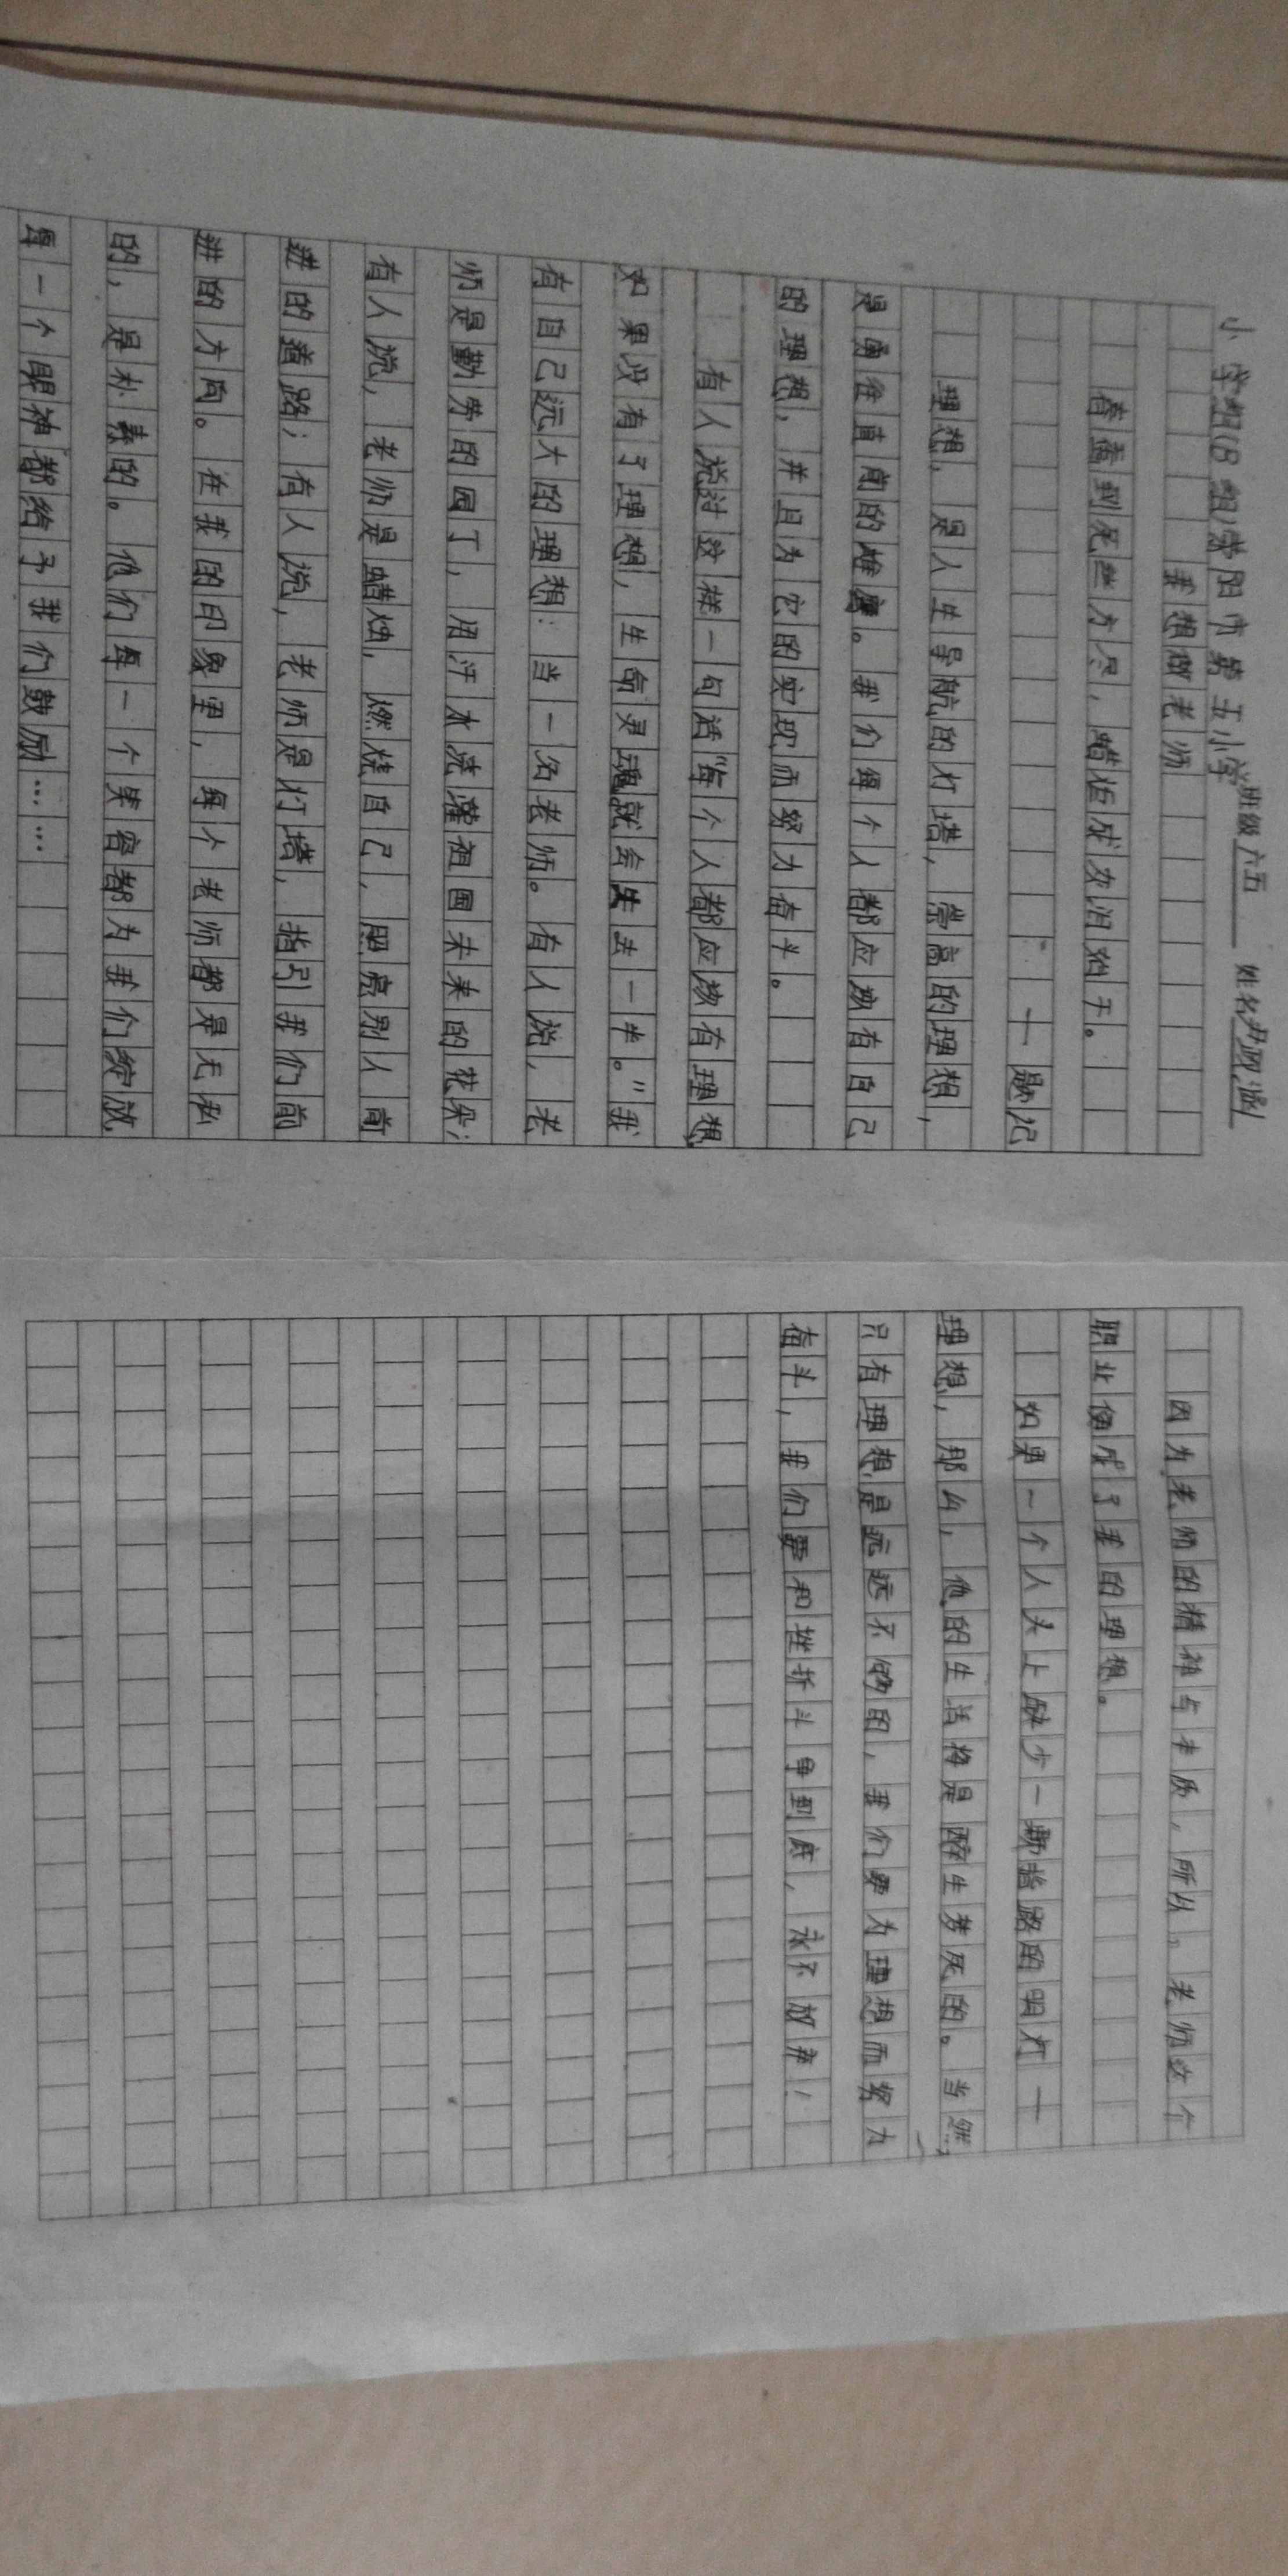 小学组(B组)荥阳市第五小学 班级六五 姓名尹政涵
我想做老师
春蚕到死丝方尽,蜡炬成灰泪始干。
——题记
理想,是人生导航的灯塔,崇高的理想,
是勇往直前的雄鹰。我们每个人都应该有自己
的理想,并且为它的实现而努力奋斗。
有人说过这样一句话“每个人都应该有理想,
如果没有了理想,生命灵魂就会失去一半。”我
有自己远大的理想:当一名老师。有人说,老
师是勤劳的园丁,用汗水浇灌祖国未来的花朵;
有人说,老师是蜡烛,燃烧自己,照亮别人前
进的道路;有人说,老师是灯塔,指引我们前
进的方向。在我的印象里,每个老师都是无私
的,是朴素的。他们每一个笑容都为我们绽放,
每一个眼神都给予我们鼓励……
因为老师的精神与本质,所以,老师这个
职业便成了我的理想。
如果一个人头上缺少一颗指路的明灯——
理想,那么,他的生活将是醉生梦死的。当然,
只有理想是远远不够的,我们要为理想而努力
奋斗,我们要和挫折斗争到底,永不放弃!